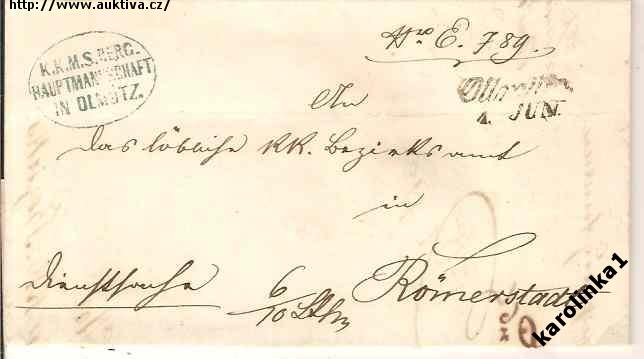 http://www.auktiva.cz/
Nro E. 789.
K.K.M.S. BERG-
HAUPTMANNSCHAFT
IN OLMÜTZ.
Ollmütz
4. JUN.
An
das löbliche KK. Bezirksamt
in
Römerstadt
Dienstsache
6/10 Lth
karolinka1